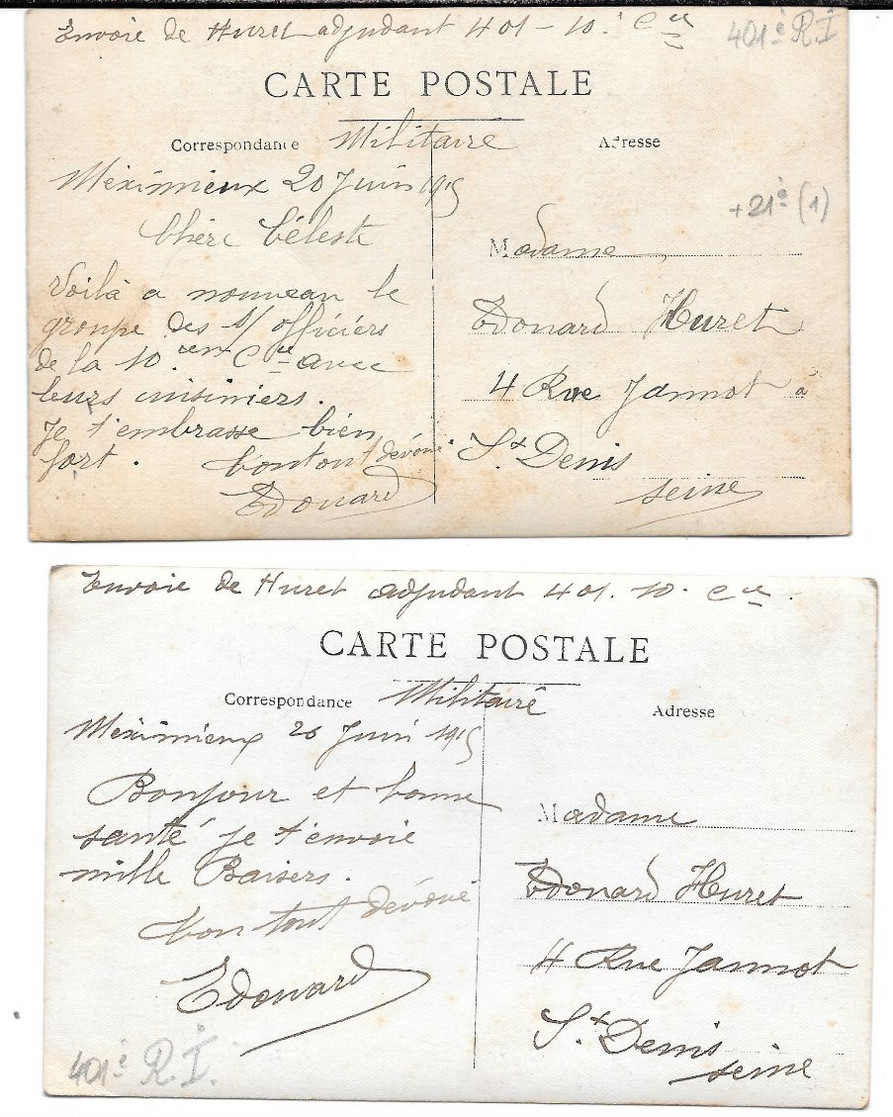 Envoie de Huret adjudant 401 - 10è Cie
401è R.I
CARTE POSTALE
Correspondance Militaire
Adresse
Méximieux 20 Juin 1915
Chère Céleste
Voilà a nouveau le
groupe des s/officiers
de la 10.em Cie avec
leurs cuisiniers.
Je t'embrasse bien
fort. ton tout dévoué.
Edouard
+21è (1)
Madame
Edouard Huret
4 Rue Jannot à
St Denis
seine
Envoie de Huret adjudant 401. 10. Cie.
CARTE POSTALE
Correspondance Militaire
Adresse
Méximieux 20 Juin 1915
Bonjour et bonne
santé je t'envoie
mille Baisers.
ton tout dévoué
Edouard
401è R.I.
Madame
Edouard Huret
4 Rue Jannot
St Denis
seine